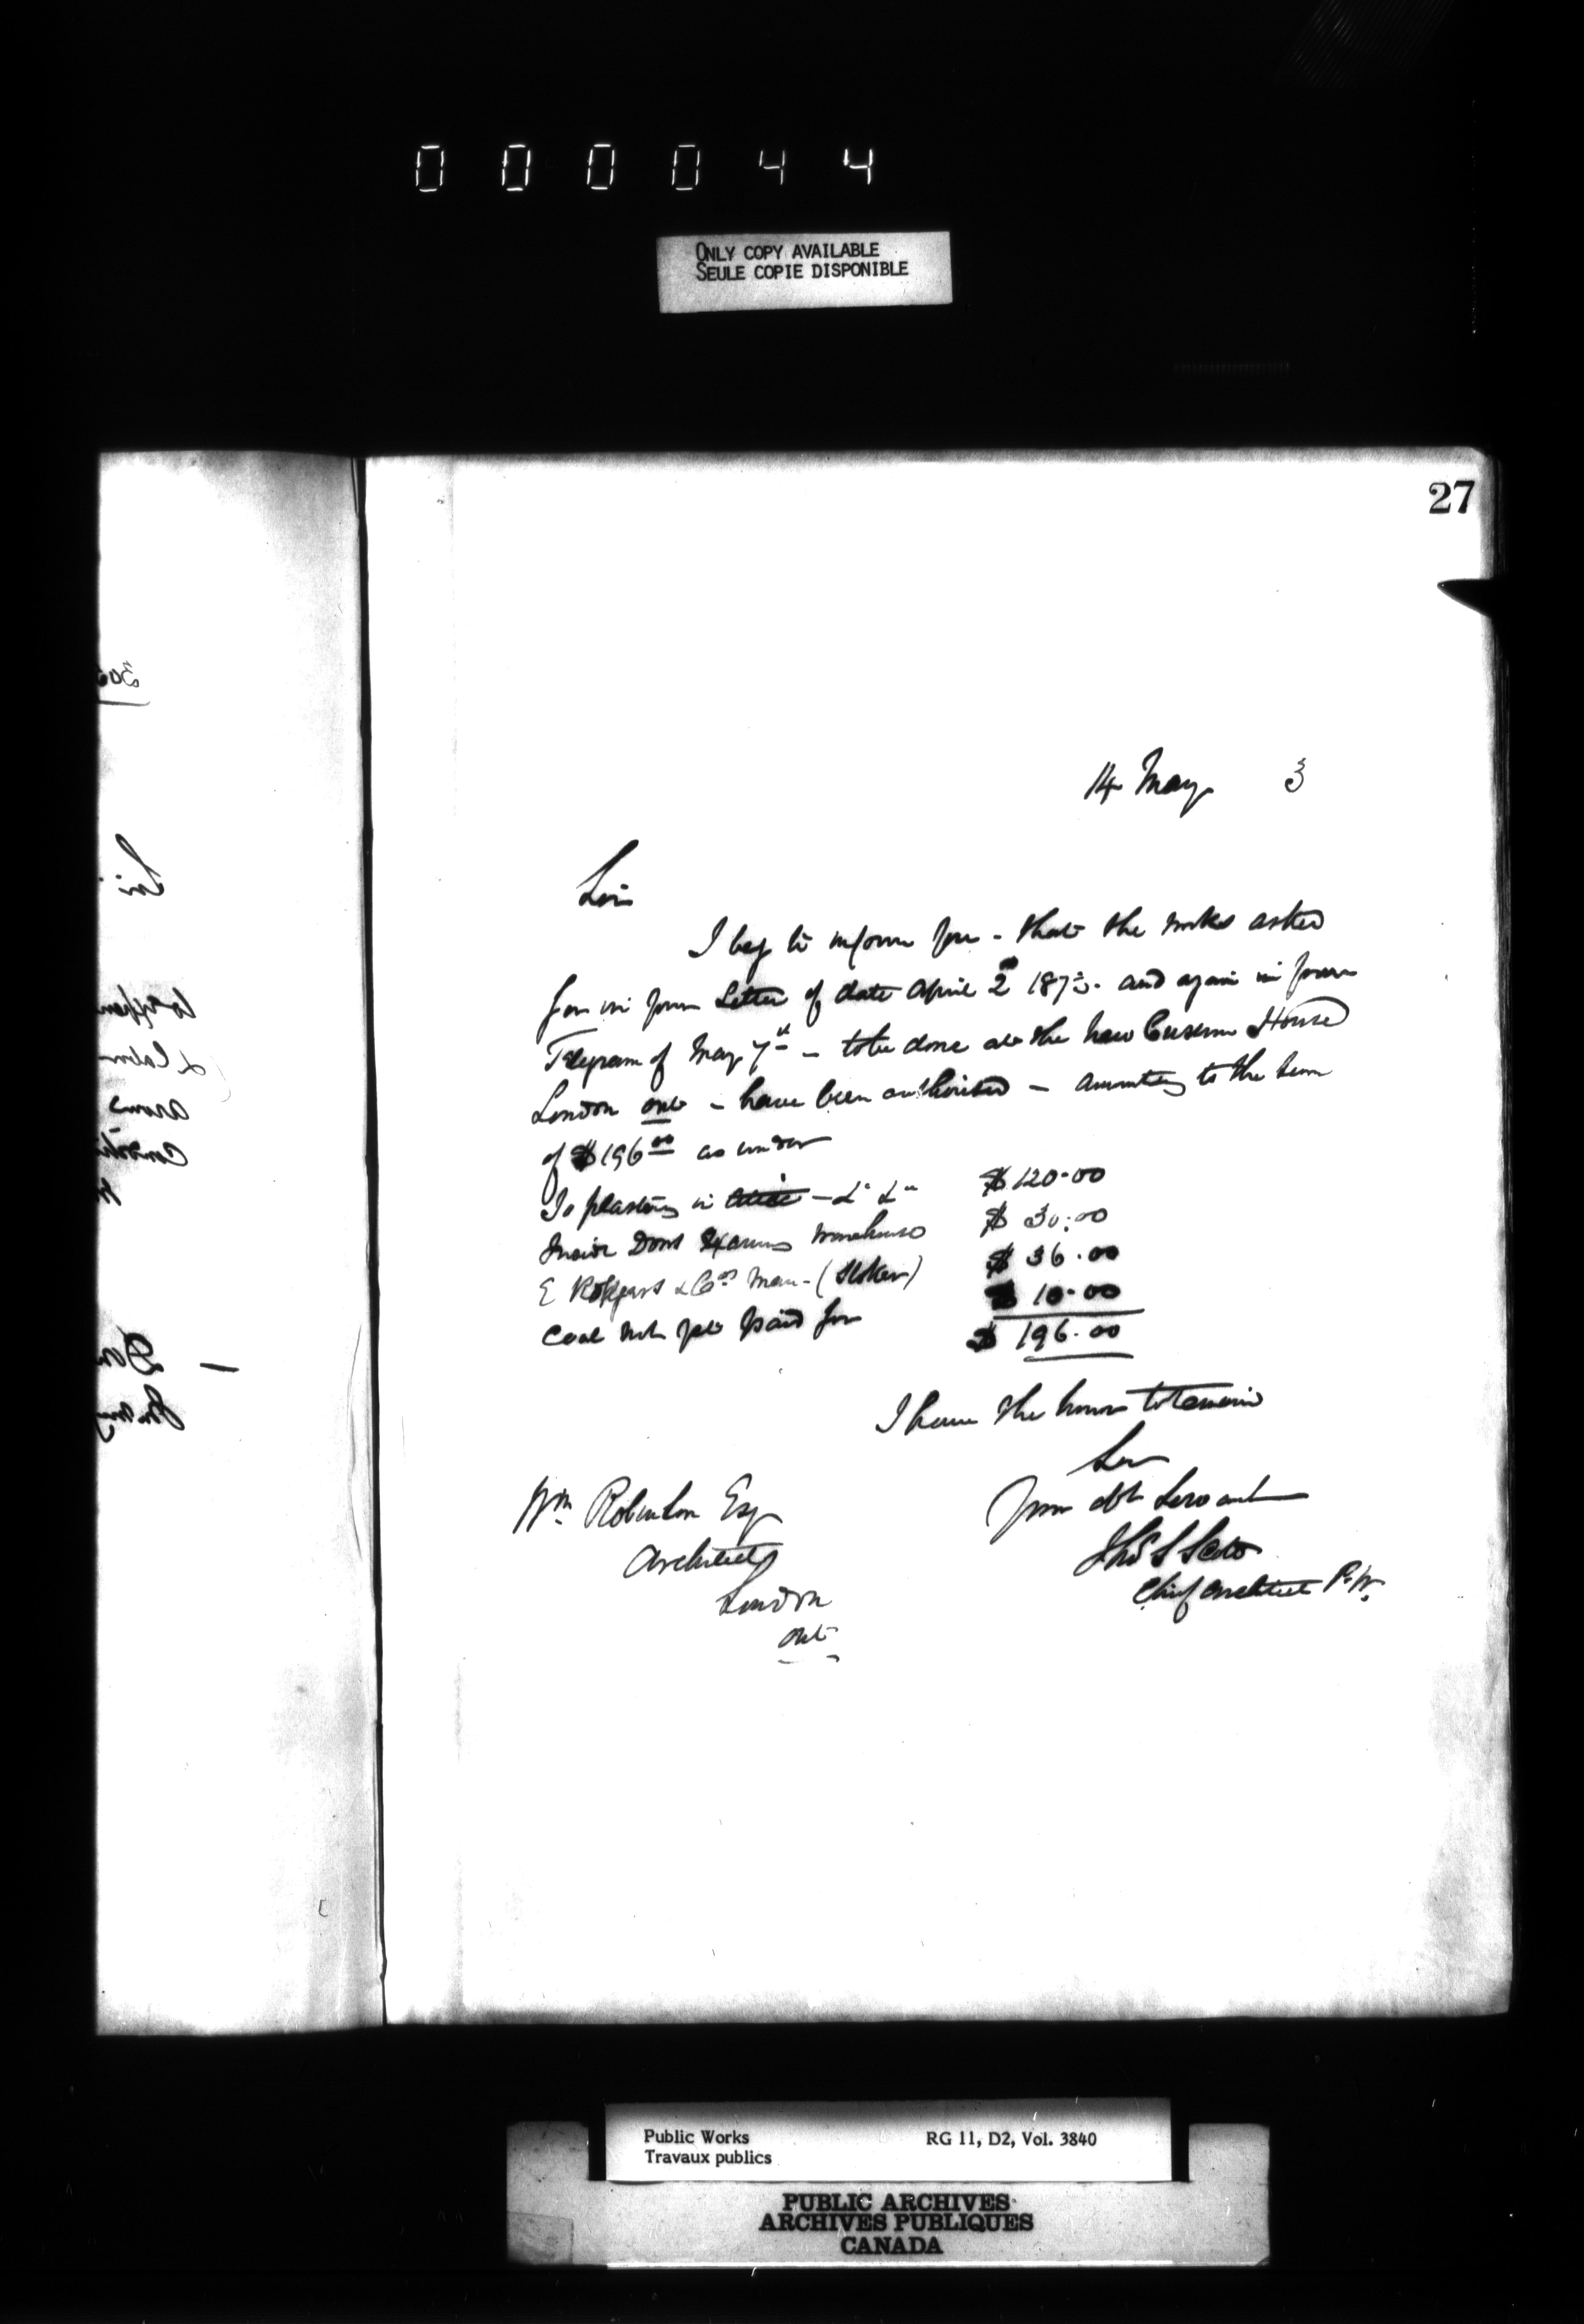 000044
ONLY COPY AVAILABLE
SEULE COPIE DISPONIBLE
27
14 May 3
Sir
I beg to inform you - that the works asked
for in your Letter of date April 2 1873. and again in your
Telegram of May 7th - to be done at the new Custom House
London Ont - have been authorised - amounting to the sum
of $196.00 as under
To plastering in - &c &c $120.00
Inside Doors Examg Warehouse $ 30.00
E & Cos Man - (Stoker) $ 36.00
Coal not yet paid for $ 10.00
$ 196.00
I have the honor to remain
Sir
Your obt Servant
Thos S Scott
Chief Architect P.W.
Wm Robinson Esq
Architect
London
Ont
Public Works RG 11, D2, Vol. 3840
Travaux publics
PUBLIC ARCHIVES
ARCHIVES PUBLIQUES
CANADA